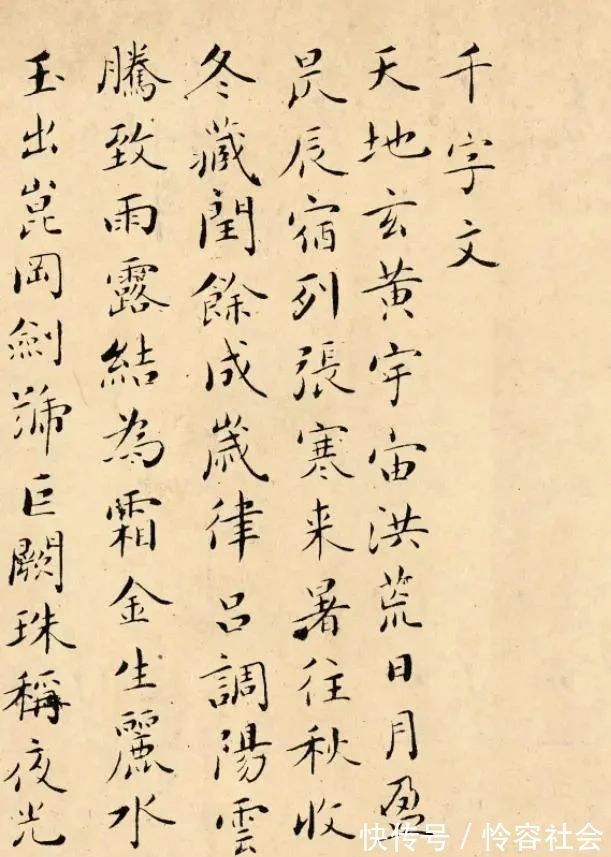 千字文
天地玄黃宇宙洪荒日月盈
昃辰宿列張寒来暑往秋收
冬藏閏餘成歲律呂調陽雲
騰致雨露結為霜金生麗水
玉出崑岡劍號巨闕珠稱夜光
快传号/怜容社会